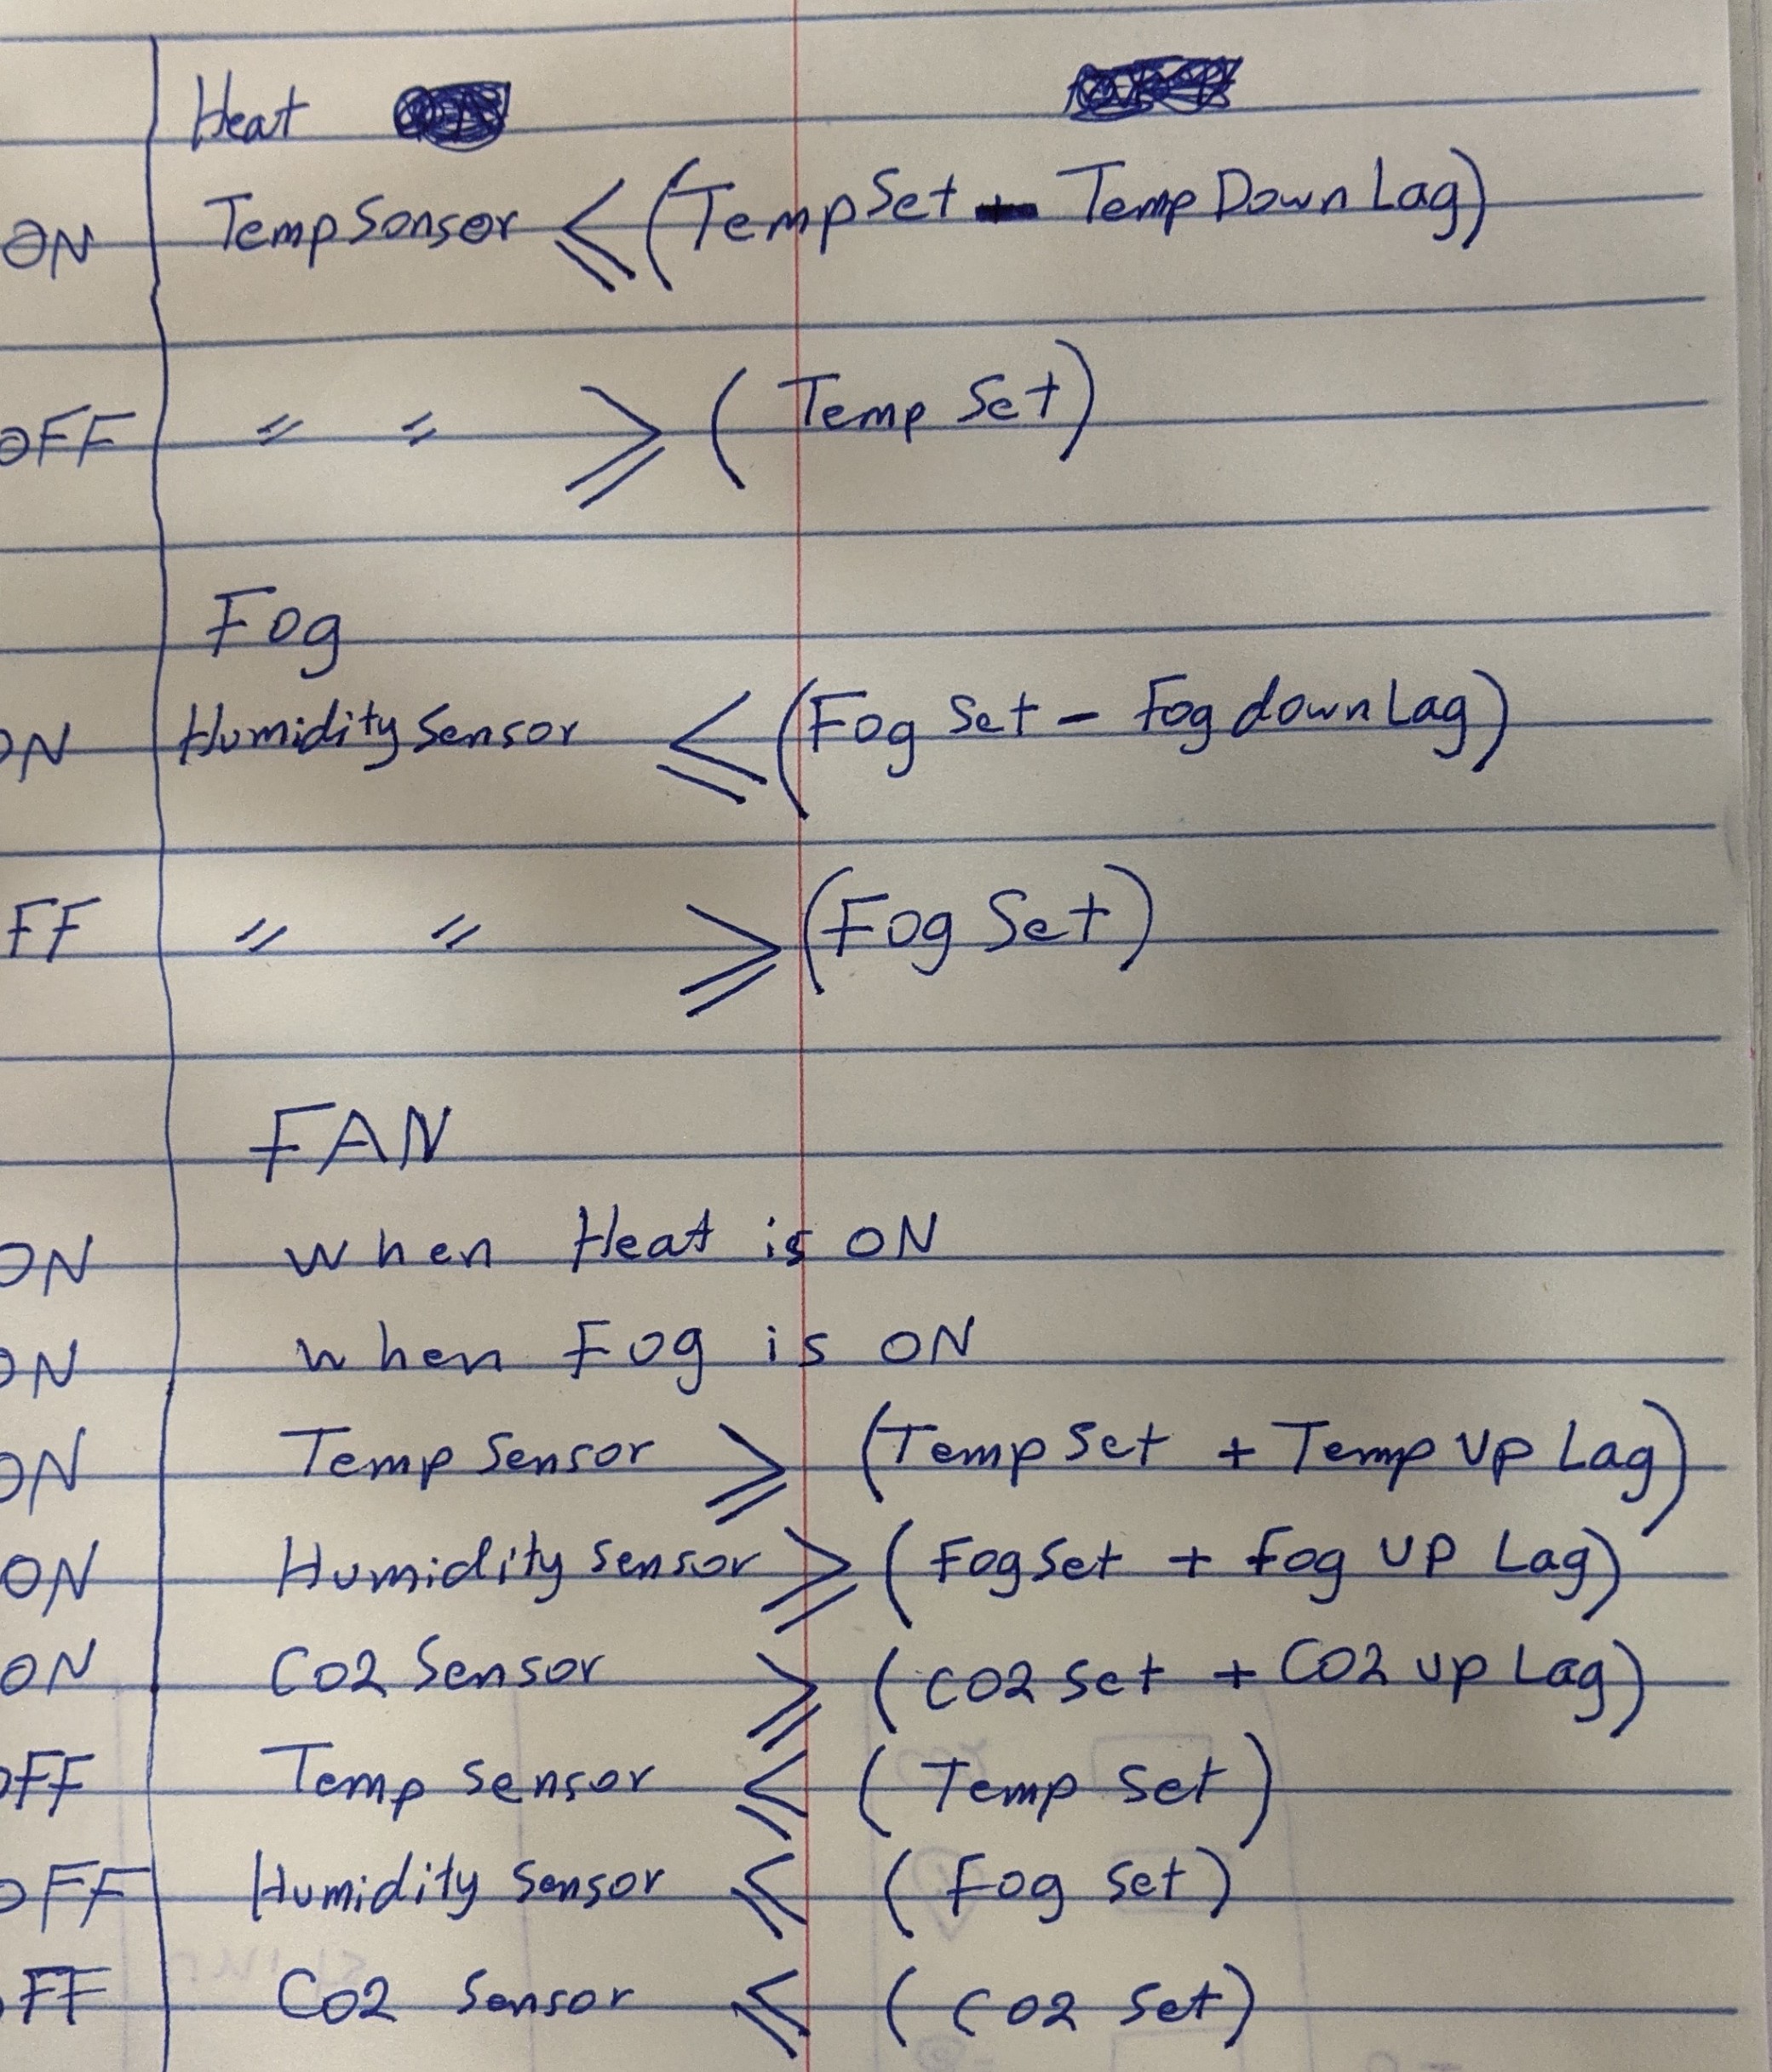 Heat
ON TempSonsor ≤ (TempSet - Temp Down Lag)
OFF 〃 〃 ≥ (Temp Set)
Fog
ON Humidity Sensor ≤ (Fog Set - Fog down Lag)
FF 〃 〃 ≥ (Fog Set)
FAN
ON when Heat is ON
ON when Fog is ON
ON Temp Sensor ≥ (Temp Set + Temp Up Lag)
ON Humidity Sensor ≥ (Fog Set + Fog UP Lag)
ON CO2 Sensor ≥ (CO2 Set + CO2 up Lag)
OFF Temp Sensor ≤ (Temp Set)
OFF Humidity Sensor ≤ (Fog Set)
FF CO2 Sensor ≤ (CO2 Set)